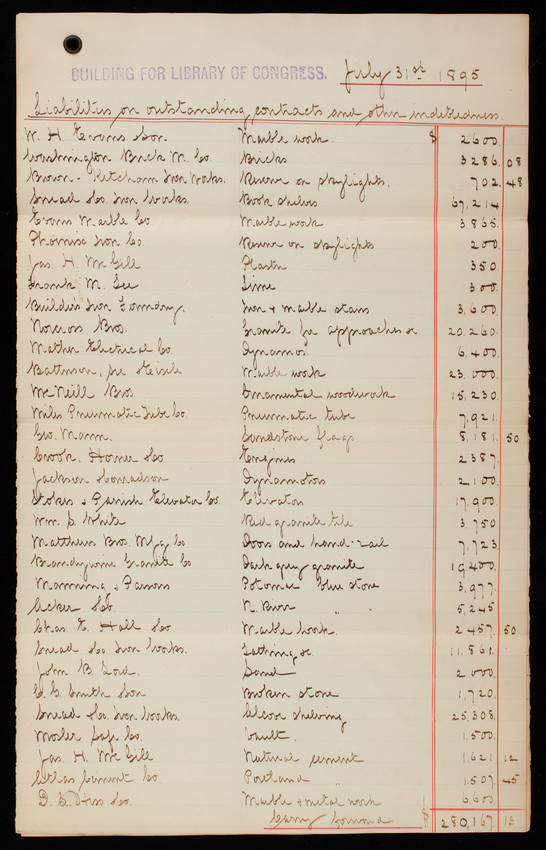 BUILDING FOR LIBRARY OF CONGRESS. July 31st 1895
Liabilities on outstanding contracts and other indebtedness.
W. H. Evans & Son Marble work $ 2600.
Washington Brick M. Co. Bricks 3286.08
Brown-Ketcham Iron Works. Reserve on skylights. 702.48
Snead & Co. Iron Works. Book shelves 67,214
Evans Marble Co Marble work 3,865.
Phoenix Iron Co. Reserve on skylights 200
Jas. H. McGill Plaster 350
Frank M. Lee Lime 300.
Builders Iron Foundry. Iron & marble stairs 3,600
Norcross Bros. Granite for approaches &c 20,260.
Mather Electrical Co. Dynamos. 6,400
Batterson, See & Eisele Marble work 23,000.
McNeill Bros. Ornamental woodwork 15,230
Miles Pneumatic Tube Co. Pneumatic tube 7,921.
Geo. Mann. Sandstone flags 8,181.50
Crook, Horner & Co. Engines 2387.
Jackson & Conradson Dynamotors 2100.
Stokes & Parrish Elevator Co. Elevators 17,900.
Wm. S. White Red granite tile 3,750
Matthews Bros. Mfg. Co Doors and hand-rail 7,723
Brandywine Granite Co Dark grey granite 19400.
Manning & Parsons Potomac blue stone 3,977.
Acker & Co. N. River " " 5,245
Chas. E. Hall & Co. Marble work. 2457.50
Snead & Co. Iron Works. Lathing &c. 11,861.
John B. Lord. Sand 2000.
G. G. Smith & Son Broken stone 1,720
Snead & Co. Iron Works. Alcove shelving 25,308.
Mosler Safe Co. Vault. 1,500.
Jas. H. McGill Natural cement 1,621 12
Atlas Cement Co. Portland " 1,507.45
D. S. Hess & Co. Marble & metal work 6,600
Carry forward $ 280,167 13